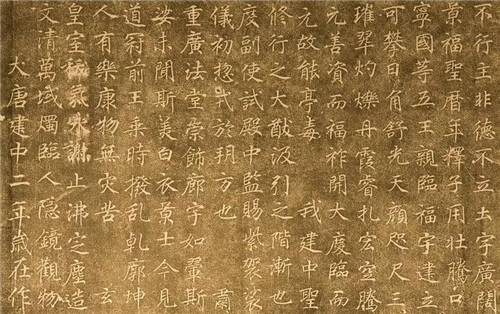 不行主非德不立土宇廣闊
章福聖曆年釋子用壯騰口
寧國等五王親臨福宇建立
可攀日角舒光天顏咫尺三
璀翠灼爍丹霞睿扎宏空騰
元善資而福祚開大慶臨而
元故能亭毒 我建中聖
修行之大猷汲引之階漸也
度副使試殿中監賜紫袈裟
儀初惣戎於朔方也 肅
重廣法堂崇飾廊宇如翬斯
娑未聞斯美白衣景士今見
道冠前王乘時撥亂乹廓坤
人有樂康物無灾苦 玄
皇室祲氛永謝止沸定塵造
文清萬域燭臨人隱鏡觀物
大唐建中二年歲在作